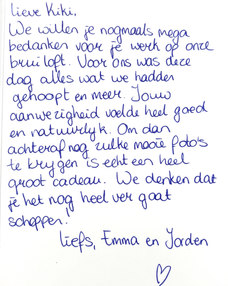 lieve Kiki,
We willen je nogmaals mega
bedanken voor je werk op onze
bruiloft. Voor ons was deze
dag alles wat we hadden
gehoopt en meer. Jouw
aanwezigheid voelde heel goed
en natuurlijk. Om dan
achteraf nog zulke mooie foto's
te krijgen is echt een heel
groot cadeau. We denken dat
je het nog heel ver gaat
schoppen!
liefs, Emma en Jorden